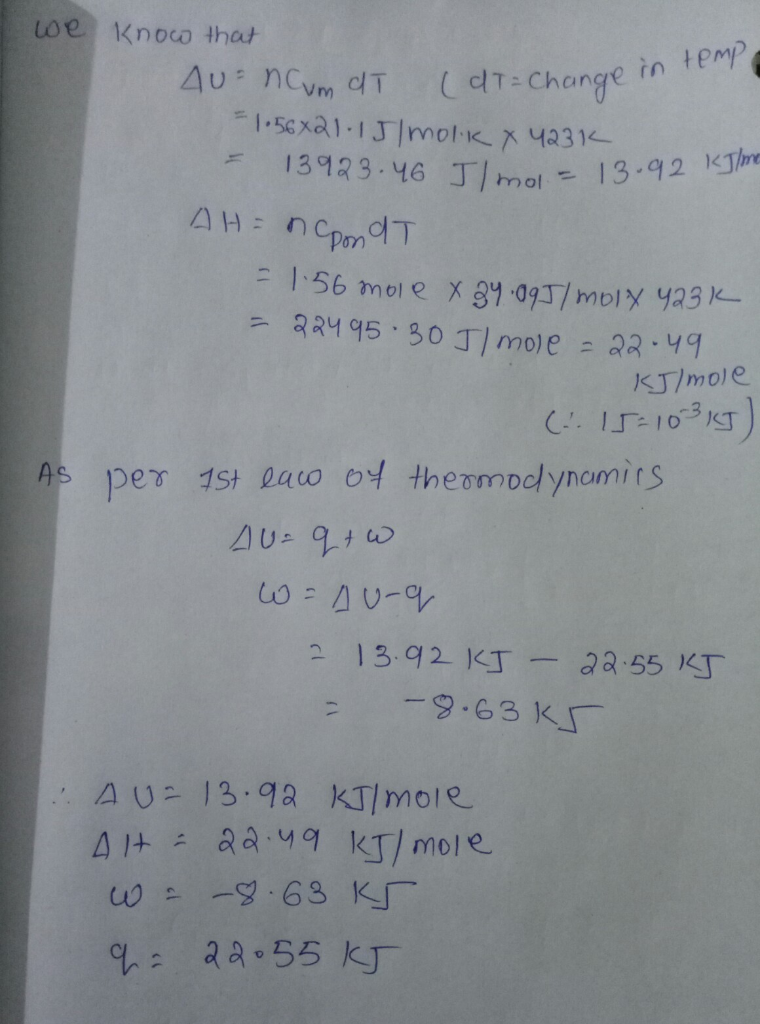 we know that
ΔU = nCvm dT ( dT = change in temp
= 1.56x21.1 J/mol.k x 423k
= 13923.46 J/mol = 13.92 KJ/mo
ΔH = nCpm dT
= 1.56 mole x 34.09J/mol x 423k
= 22495.30 J/mole = 22.49
KJ/mole
(∴ 1J=10⁻³KJ)
As per 1st law of thermodynamics
ΔU = q + w
w = ΔU-q
= 13.92 KJ - 22.55 KJ
= -8.63 KJ
∴ ΔU = 13.92 KJ/mole
ΔH = 22.49 KJ/mole
w = -8.63 KJ
q = 22.55 KJ